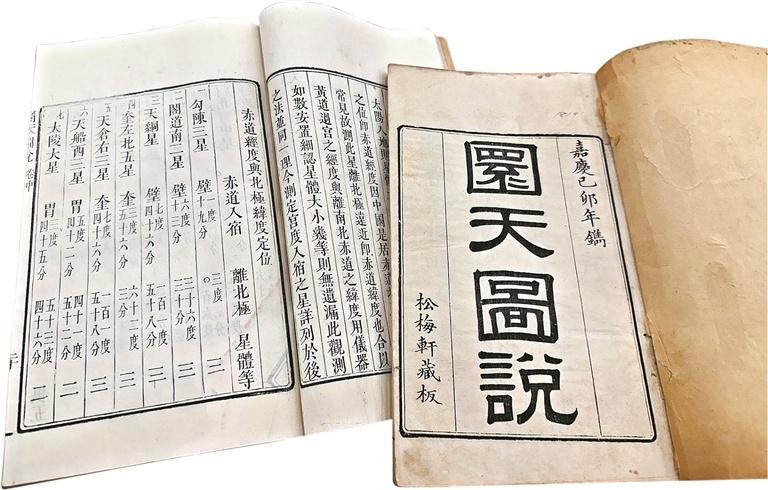 嘉慶己卯年鐫
圜天圖說
松梅軒藏板
太陽入地則
之位即赤道經度因中國是居赤道
常見故測此星離北極遠近即赤道緯度也合以
黃道過宮之經度與離南北赤道之緯度用儀器
如數安置細認星體大小幾等則無遺漏此觀測
之法並同一理今測定宮度入宿之星詳列於後
赤道經度與北極緯度定位
赤道入宿 離北極 星體等
一 勾陳三星 壁 一度 十九分 三度 〇 三
二 閣道南二星 壁 六度 三分 三十度 三十六分 三
三 天綱星 壁 七度 四十四分 一百二 五十八分 一
四 奎左北五星 奎 三度 五十六分 六十二度 三分 二
五 天倉右三星 奎 七度 二十六分 一百一度 五十八分 三
六 天船西三星 胃 五度 四十二分 四十一度 五十一分 二
七 大陵大星 胃 三度 四十五分 五十三度 四十六分 二
天圖說 卷中